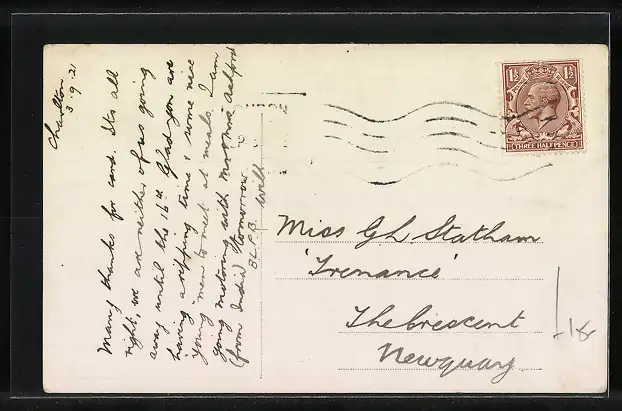 Charlton
3.9.21
Many thanks for card. It's all
right, we are neither of us going
away until the 16th. Glad you are
having a ripping time & some nice
young men to meet at meals. I am
going motoring with Mr & Mrs Ashford
(from India) tomorrow.
Will
1½ 1½
THREE HALFPENCE
Miss G L Statham
'Trenance'
The Crescent
Newquay
-18